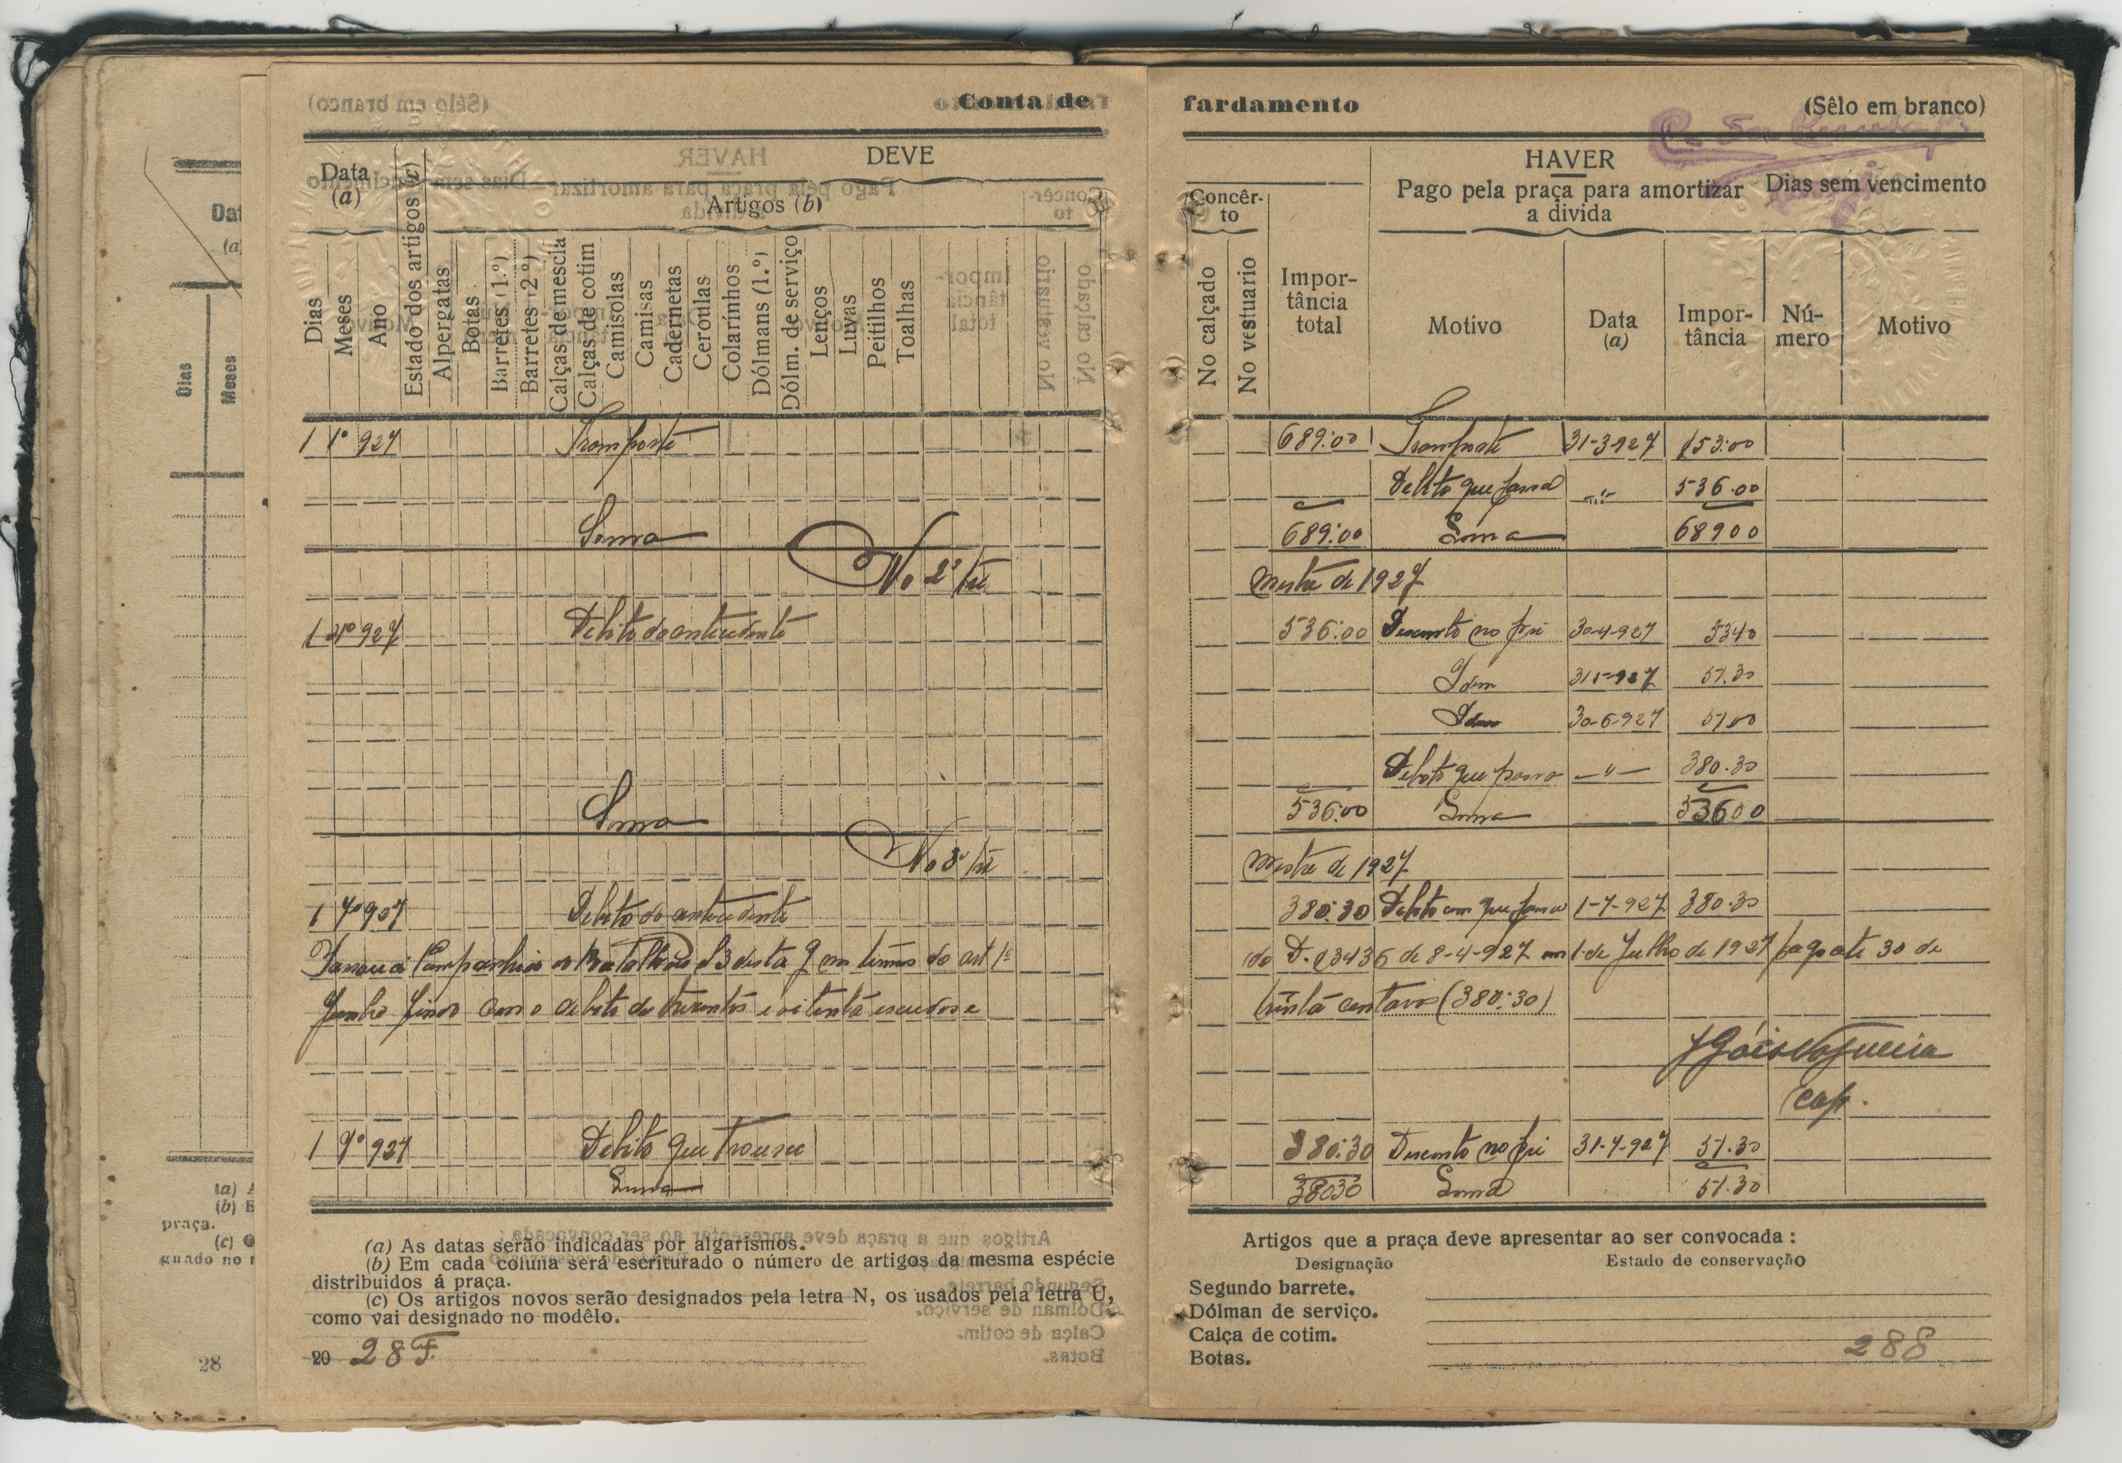 Conta de fardamento
(Sêlo em branco)
DEVE
Data
(a)
Artigos (b)
Dias
Meses
Ano
Estado dos artigos (c)
Alpergatas
Botas
Barretes (1.º)
Barretes (2.º)
Calças de mescla
Calças de cotim
Camisolas
Camisas
Cadernetas
Ceroulas
Colarinhos
Dólmans (1.º)
Dólm. de serviço
Lenços
Luvas
Peitilhos
Toalhas
HAVER
Concêr-
to
Pago pela praça para amortizar
a divida
Dias sem vencimento
No calçado
No vestuario
Impor-
tância
total
Motivo
Data
(a)
Impor-
tância
Nú-
mero
Motivo
1 1º 927 Transporte 689:00 Transporte 31-3-927 153:00
Debito que passa -"- 536.00
Soma 689:00 Soma 689 00
No 2º tri mestre de 1927
1 4º 927 Debito do antecedente 536:00 Desconto no pré 30-4-927 53 40
Idem 31 5-927 51.30
Idem 30-6-927 51,00
Debito que passa —"— 380.30
Soma 536:00 Soma 536 00
No 3º tri mestre de 1927
1 7º 927 Debito do antecedente 380:30 Debito com que passa 1-7-927 380.30
Passou á Companhia do Batalhão nos termos do art 1º do D. 13436 de 8-4-927 em 1 de Julho de 1927 pago até 30 de
Junho findo com o debito de trezentos e oitenta escudos e trinta centavos (380:30)
Góis Nogueira
Cap.
1 7º 927 Debito que trouxe 380:30 Desconto no pré 31-7-927 51.30
Soma 380 30 Soma 51.30
(a) As datas serão indicadas por algarismos.
(b) Em cada coluna será escriturado o número de artigos da mesma espécie
distribuidos á praça.
(c) Os artigos novos serão designados pela letra N, os usados pela letra U,
como vai designado no modêlo.
20 28 F.
Artigos que a praça deve apresentar ao ser convocada :
Designação
Estado de conservação
Segundo barrete.
Dólman de serviço.
Calça de cotim.
Botas.
288
Dias
Meses
(a)
(b)
praça.
(c)
28